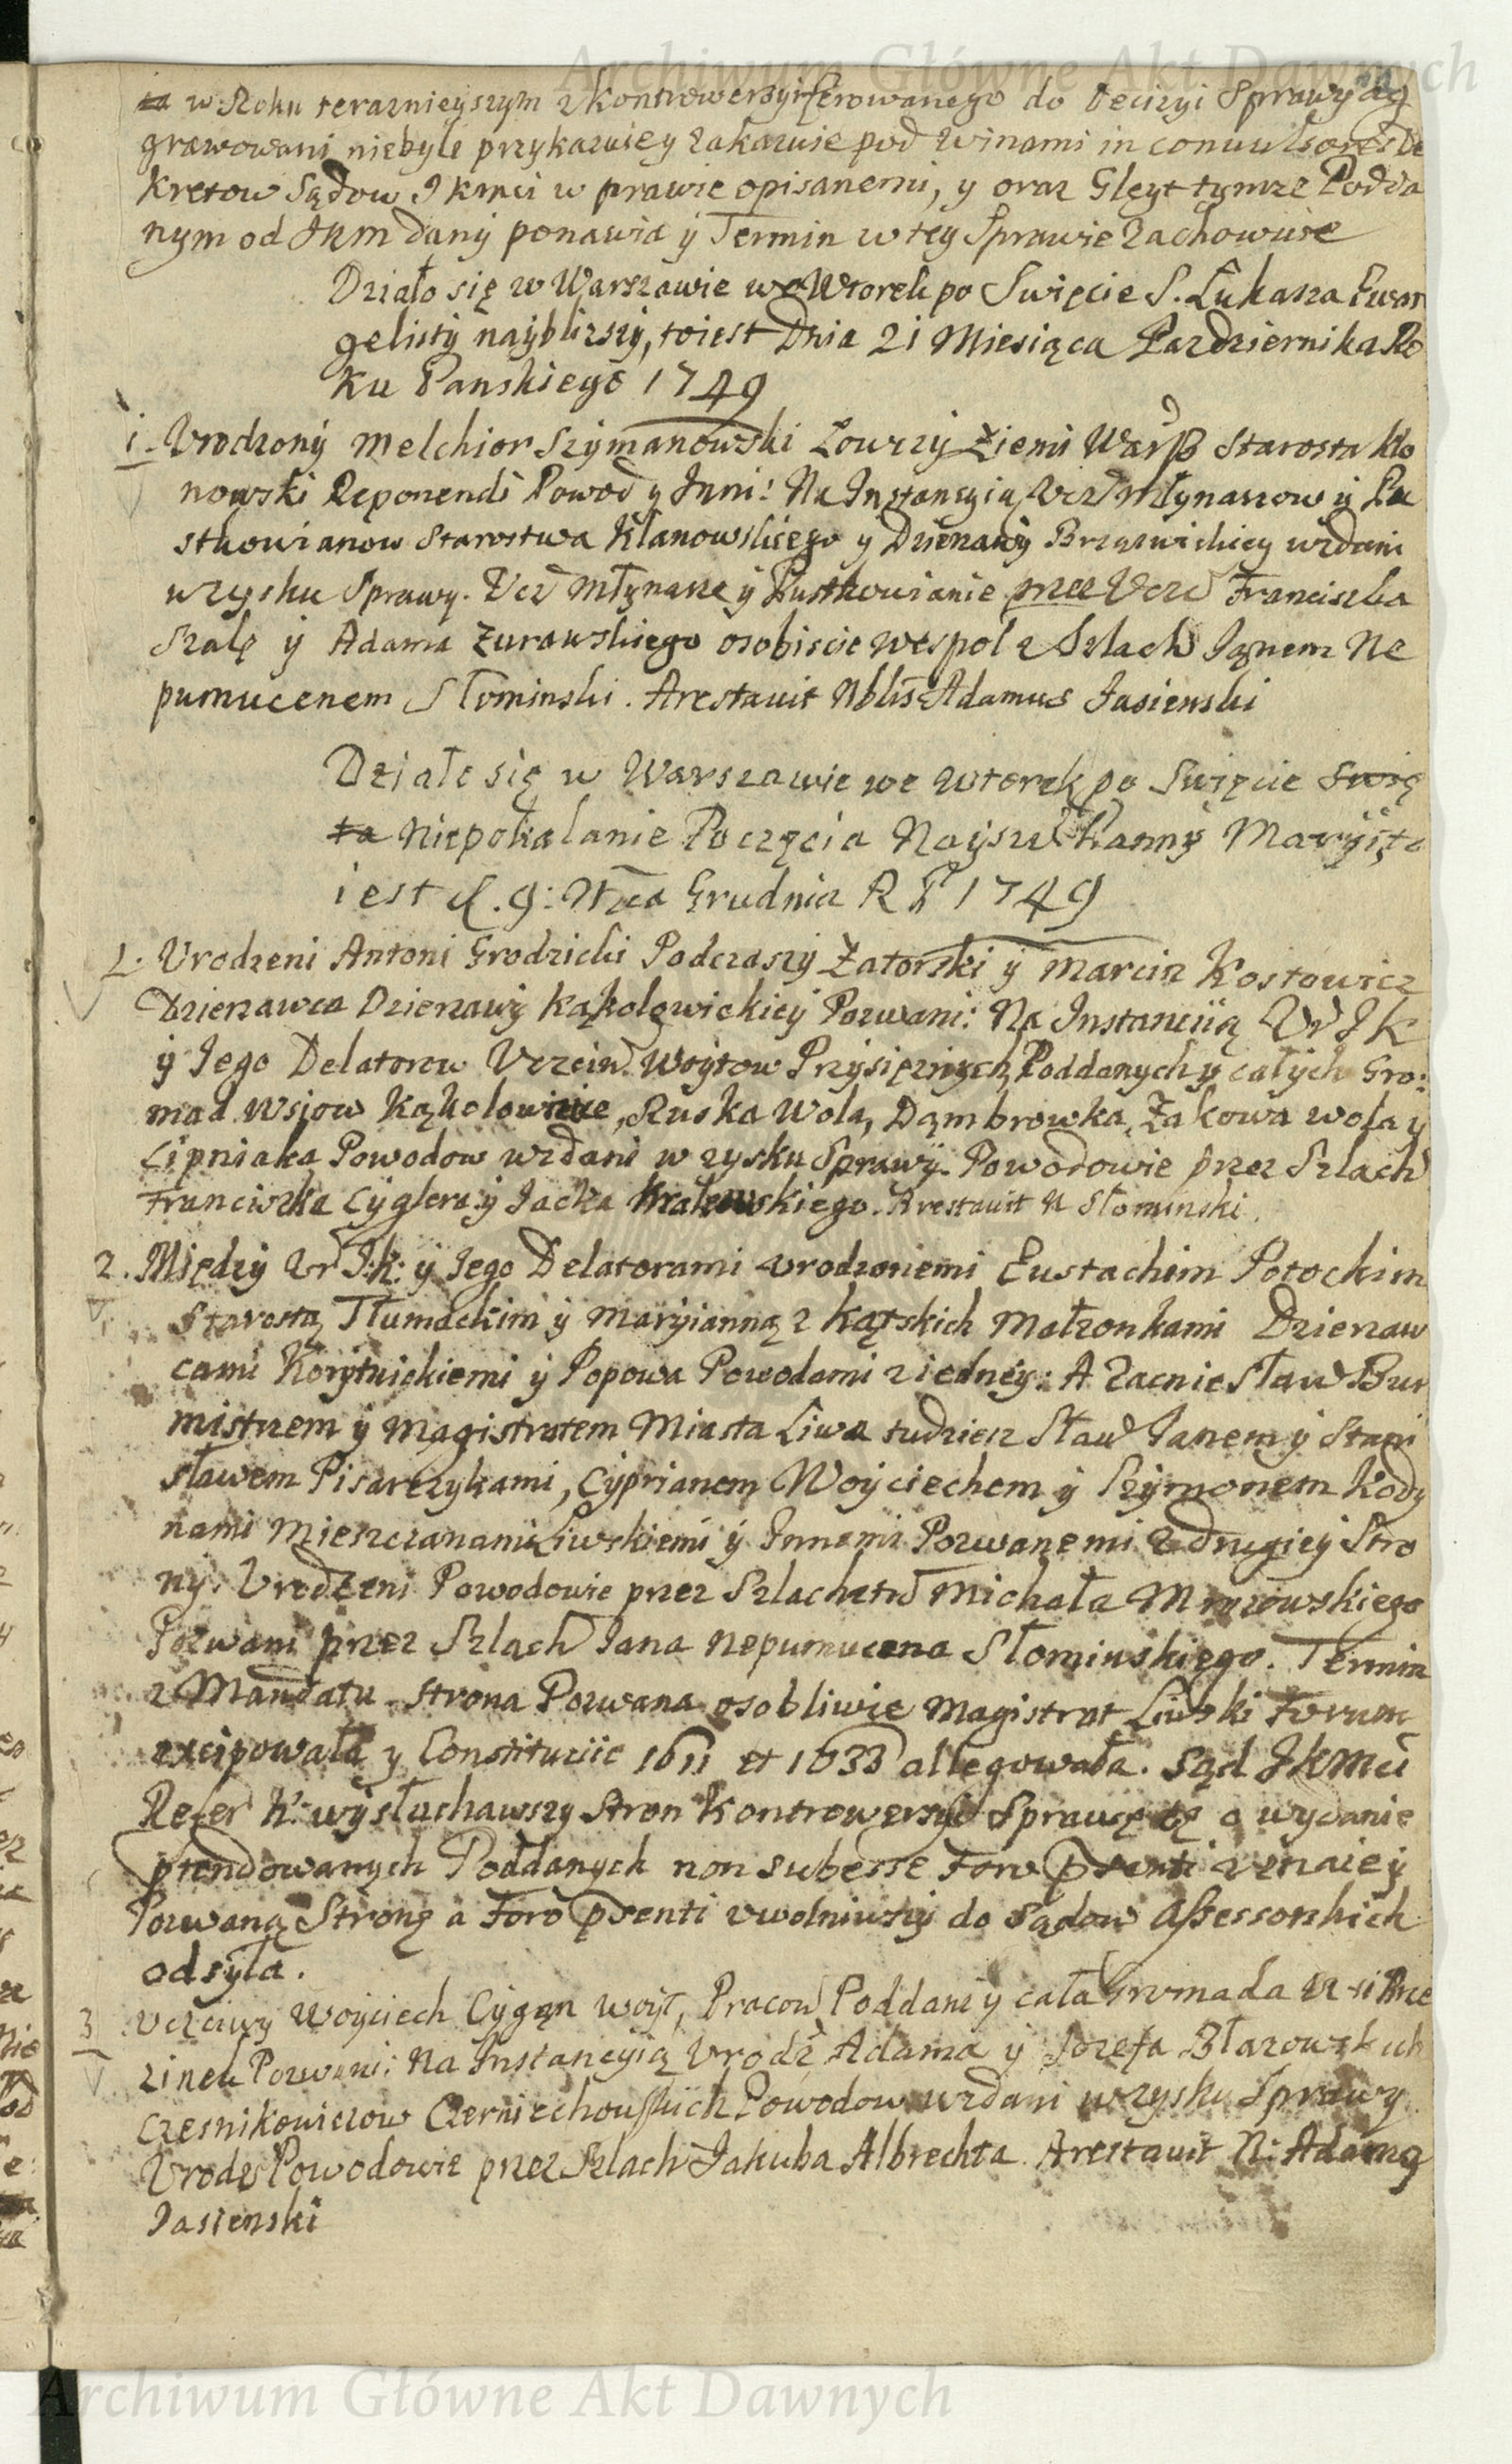 Archiwum Główne Akt Dawnych
w Roku teraznieyszym z kontrowersyi ferowanego do Decizyi Sprawy ag
grawowani niebyli przykazuie y zakazuie pod winami in convulsores De
kretow Sądow J kmci w prawie opisanemi, y oraz Gleyt tymze Podda
nym od Jkm dany ponawia ÿ Termin w tey Sprawie zachowuie
Działo się w Warszawie we Wtorek po Swięcie S. Łukasza Ewan
gelisty naÿblizszÿ, toiest Dnia 21 Miesiąca Pazdziernika Ro
ku Panskiego 1749
1. Urodzonÿ Melchior Szÿmanowski Łowczÿ Ziemi Warss Starosta Kło
nowski Reponendi Powod y Inni: Na Instancyią Ucz Młynarzow ÿ Pu
stkowianow Starostwa Klanowskiego y Dzierzawy Brząznickiey wzdani
w zysku Sprawy. Ucz Młynarze ÿ Pustkowianie przez Ucz Franciszka
Szalę ÿ Adama Zurawskiego osobiscie wespoł z Szlach Janem Ne
pumucenem Słominski. Arestavit Nblis Adamus Jasienski
Działo się w Warszawie we Wtorek po Swięcie Swię
ta Niepokalanie Poczęcia Nayszw Panny Maryi, to
iest d. 9: Mca Grudnia R P 1749
1. Urodzeni Antoni Grodzicki Podczaszy Zatorski ÿ Marcin Kostowicz
Dzierzawca Dzierzawÿ Kąkolowickiey Pozwani: Na Instancÿią Ur J K
ÿ Jego Delatorow Uczciw Woytow Przysięznych Poddanych y całych Gro:
mad Wsiow Kąkolowice, Ruska Wola, Dąmbrowka, Zakowa Wola y
Lipniaka Powodow wzdani w zysku Sprawÿ. Powodowie przez Szlach
Franciszka Cÿglera ÿ Jacka Krakowskiego. Arestavit N Słominski.
2. Między Ur J:K: ÿ Jego Delatorami Urodzoniemi Eustachim Potockim
Starostą Tłumackim ÿ Marÿianną z Kątskich Małzonkami Dzierzaw
cami Korytnickiemi ÿ Popowa Powodami z iedney: A Zacnie Sław Bur
mistrzem ÿ Magistratem Miasta Liwa tudziez Sław Janem ÿ Stani
sławem Pisarczykami, Cyprianem Woÿciechem ÿ Szÿmonem Kody
nami Mieszczanami Liwskiemi ÿ Innemi Pozwanemi z drugiey Stro
nÿ. Urodzeni Powodowie przez Szlachetn Michała Mrozowskiego
Pozwani przez Szlach Jana Nepumucena Słominskiego. Termin
z Mandatu. Strona Pozwana osobliwie Magistrat Liwski Forum
excipowała y Constitucÿie 1611 et 1633 allegowała. Sąd Jkmci
Refer K: wysłuchawszy Stron Kontrowersye Sprawę tę o wydanie
ptendowanych Poddanych non subesse Foro psenti uznaie ÿ
Pozwaną Stronę a Foro psenti uwolniwszy do Sądow Assessorskich
odsyła.
3 Uczciwy Woÿciech Cygan Woyt, Pracow Poddani y cała Gromada Wsi Brze
zinek Pozwani: Na Instancyią Urodz Adama ÿ Jozefa Błazowskich
Czesnikowiczow Czerniechowskich Powodow wzdani w zysku Sprawy.
Urodz Powodowie przez Szlach Jakuba Albrechta. Arestavit N: Adamg
Jasienski
Archiwum Główne Akt Dawnych